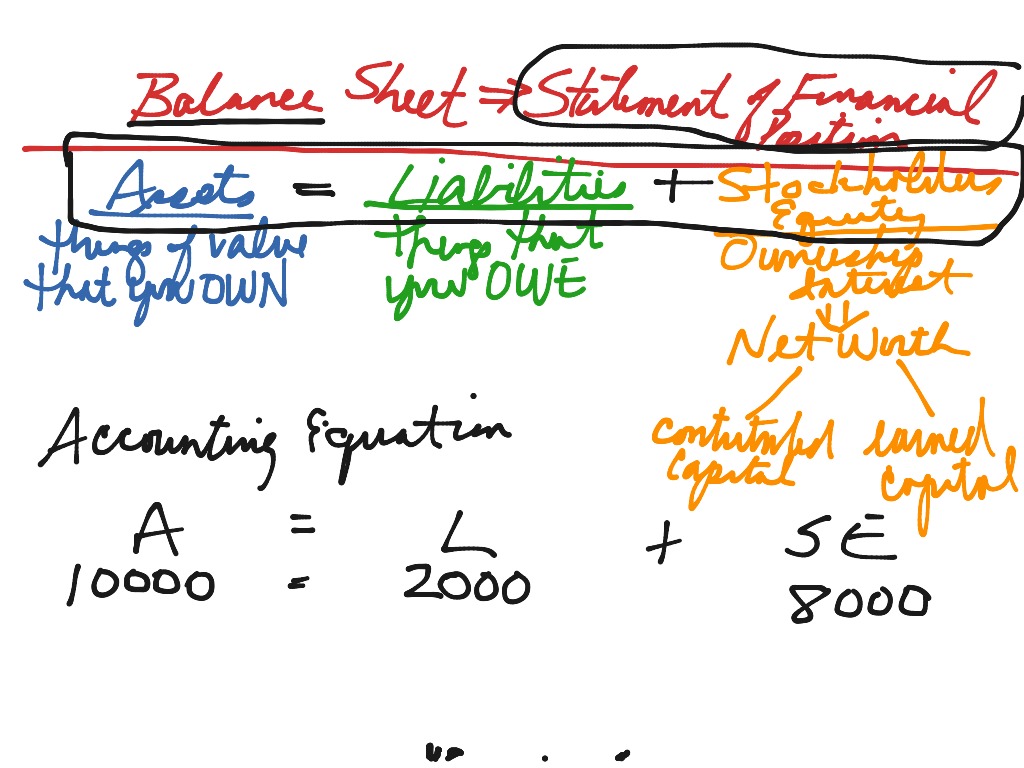 Balance Sheet ⇒ Statement of Financial
Position
Assets = Liabilities + Stockholders
Equity
things of value
that you OWN
things that
you OWE
Ownership
Interest
Net Worth
contributed
capital
earned
capital
Accounting Equation
A = L + SE
10000 = 2000 8000